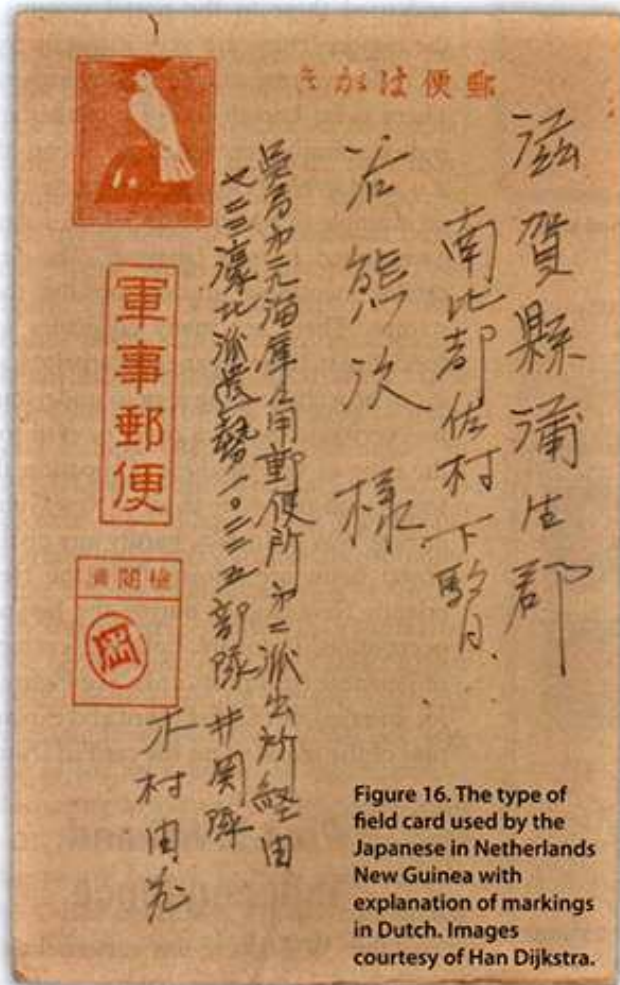 郵便はがき
滋賀縣蒲生郡
南比都佐村下駒月
谷熊次様
海軍用郵便所 派出所経由
濠北派遣勢一〇二二五部隊井関隊
木村由
軍事郵便
檢閲濟
Figure 16. The type of
field card used by the
Japanese in Netherlands
New Guinea with
explanation of markings
in Dutch. Images
courtesy of Han Dijkstra.